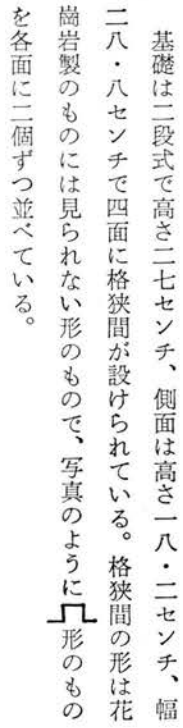 基礎は二段式で高さ二七センチ、側面は高さ一八・二センチ、幅
二八・八センチで四面に格狭間が設けられている。格狭間の形は花
崗岩製のものには見られない形のもので、写真のように形のもの
を各面に二個ずつ並べている。